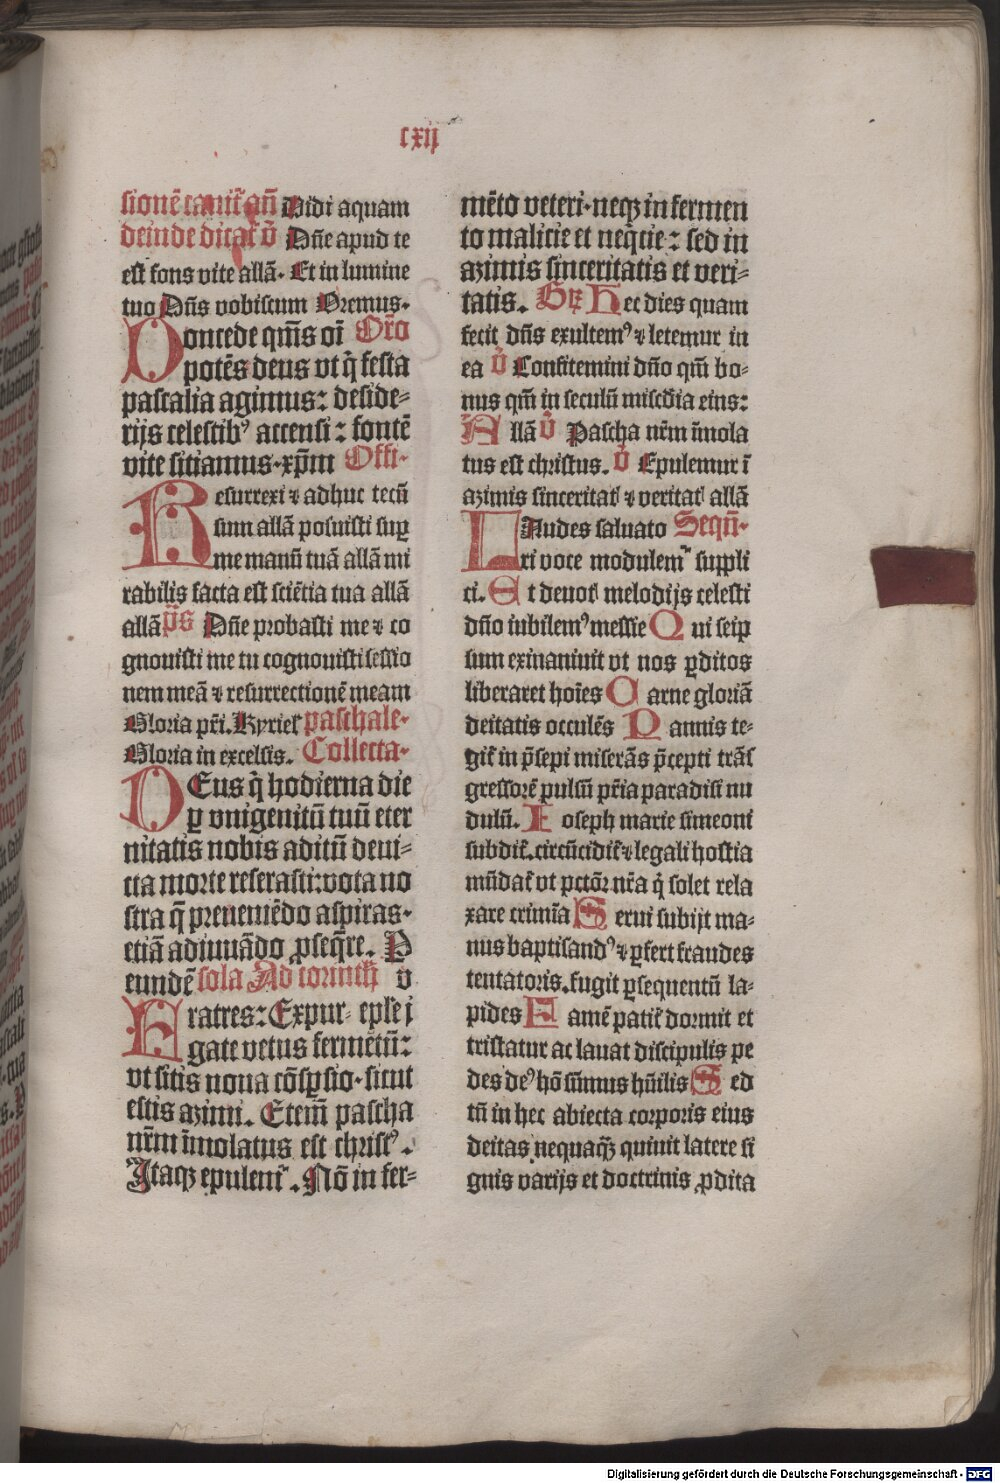 cxij
sionē canit̄ añ Vidi aquam
deinde dicat̄ v̄ Dñe apud te
est fons vite allā. Et in lumine
tuo Dñs vobiscum Oremus.
Concede qm̄s oī Oro
potēs deus vt q̄ festa
pascalia agimus: deside-
rijs celestibꝰ accensi: fontē
vite sitiamus.xp̄m Offi.
Resurrexi ⁊ adhuc tecū
sum allā posuisti suꝑ
me manū tuā allā mi
rabilis facta est sciētia tua allā
allā p̄s Dñe probasti me ⁊ co
gnouisti me tu cognouisti sessio
nem meā ⁊ resurrectionē meam
Gloria pr̄i. Kyriel̄ paschale.
Gloria in excelsis. Collecta.
DEus q̄ hodierna die
ꝑ vnigenitū tuū eter
nitatis nobis aditū deui-
cta morte reserasti: vota no
stra q̄ preueniēdo aspiras.
etiā adiuuādo ꝓseq̄re. P
eundē sola Ad corinth̄ v
Fratres: Expur epl̄e j
gate vetus fermētū:
vt sitis noua cōsꝑsio. sicut
estis azimi. Etem̄ pascha
nr̄m īmolatus est christꝰ.
Itaqꝫ epulem̄. Nō in fer-
mēto veteri. neqꝫ in fermen
to malicie et neq̄tie: sed in
azimis sinceritatis et veri-
tatis. Gꝛ Hec dies quam
fecit dñs exultemꝰ ⁊ letemur in
ea v̄ Confitemini dño qm̄ bo-
nus qm̄ in seculū misc̄dia eius:
Allā v̄ Pascha nr̄m īmola
tus est christus. v̄ Epulemur ī
azimis sinceritat̄ ⁊ veritat̄ allā
LAudes saluato Seqū.
ri voce modulem̄ suppli
ci. Et deuot̄ melodijs celesti
dño iubilemꝰ messie Qui seip
sum exinaniuit vt nos ꝑditos
liberaret hoīes Carne gloriā
deitatis occulēs Pannis te-
git̄ in p̄sepi miserās p̄cepti trās
gressorē pulsū pr̄ia paradisi nu
dulū. Ioseph marie simeoni
subdit̄. circūcidit̄ ⁊ legali hostia
mūdat̄ vt pctōꝛ nr̄a q̄ solet rela
xare crimīa Serui subijt ma-
nus baptisandꝰ ⁊ ꝑfert fraudes
tentatoris. fugit ꝑsequentū la-
pides Famē patit̄ dormit et
tristatur ac lauat discipulis pe
des deꝰ hō sūmus hūilis Sed
tñ in hec abiecta corporis eius
deitas nequaqꝫ quiuit latere si
gnis varijs et doctrinis ꝓdita
Digitalisierung gefördert durch die Deutsche Forschungsgemeinschaft - DFG